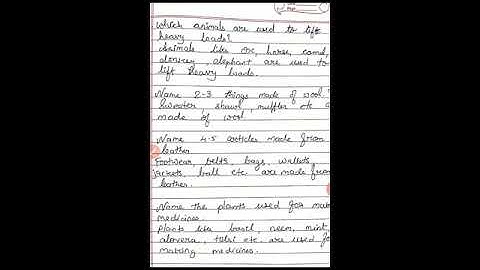 Which animals are used to lift
heavy loads?
Animals like ox, horse, camel,
donkey, elephant are used to
lift heavy loads.
Name 2-3 things made of wool.
Sweater, shawl, muffler etc a
made of wool.
Name 4-5 articles made from
leather
Footwear, belts, bags, wallets,
jackets, ball etc are made from
leather.
Name the plants used for
medicines.
Plants like basil, neem, mint,
alovera, tulsi etc. are used fo
making medicines.